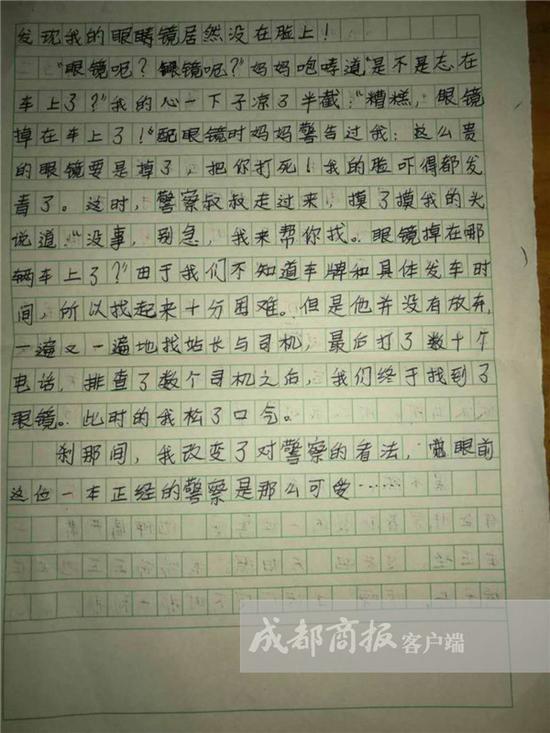 发现我的眼睛镜居然没在脸上！
“眼镜呢？眼镜呢？”妈妈咆哮道“是不是忘在
车上了？”我的心一下子凉了半截：“糟糕，眼镜
掉在车上了！”配眼镜时妈妈警告过我：这么贵
的眼镜要是掉了，把你打死！我的脸吓得都发
青了。这时，警察叔叔走过来，摸了摸我的头
说道：“没事，别急，我来帮你找。眼镜掉在哪
辆车上了？”由于我们不知道车牌和具体发车时
间，所以找起来十分困难。但是他并没有放弃，
一遍又一遍地找站长与司机，最后打了数十个
电话，排查了数个司机之后，我们终于找到了
眼镜。此时的我松了口气。
刹那间，我改变了对警察的看法，眼前
这位一本正经的警察是那么可爱……
成都商报客户端